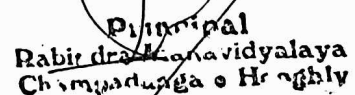 Principal
Rabindra Mahavidyalaya
Champadanga • Hooghly